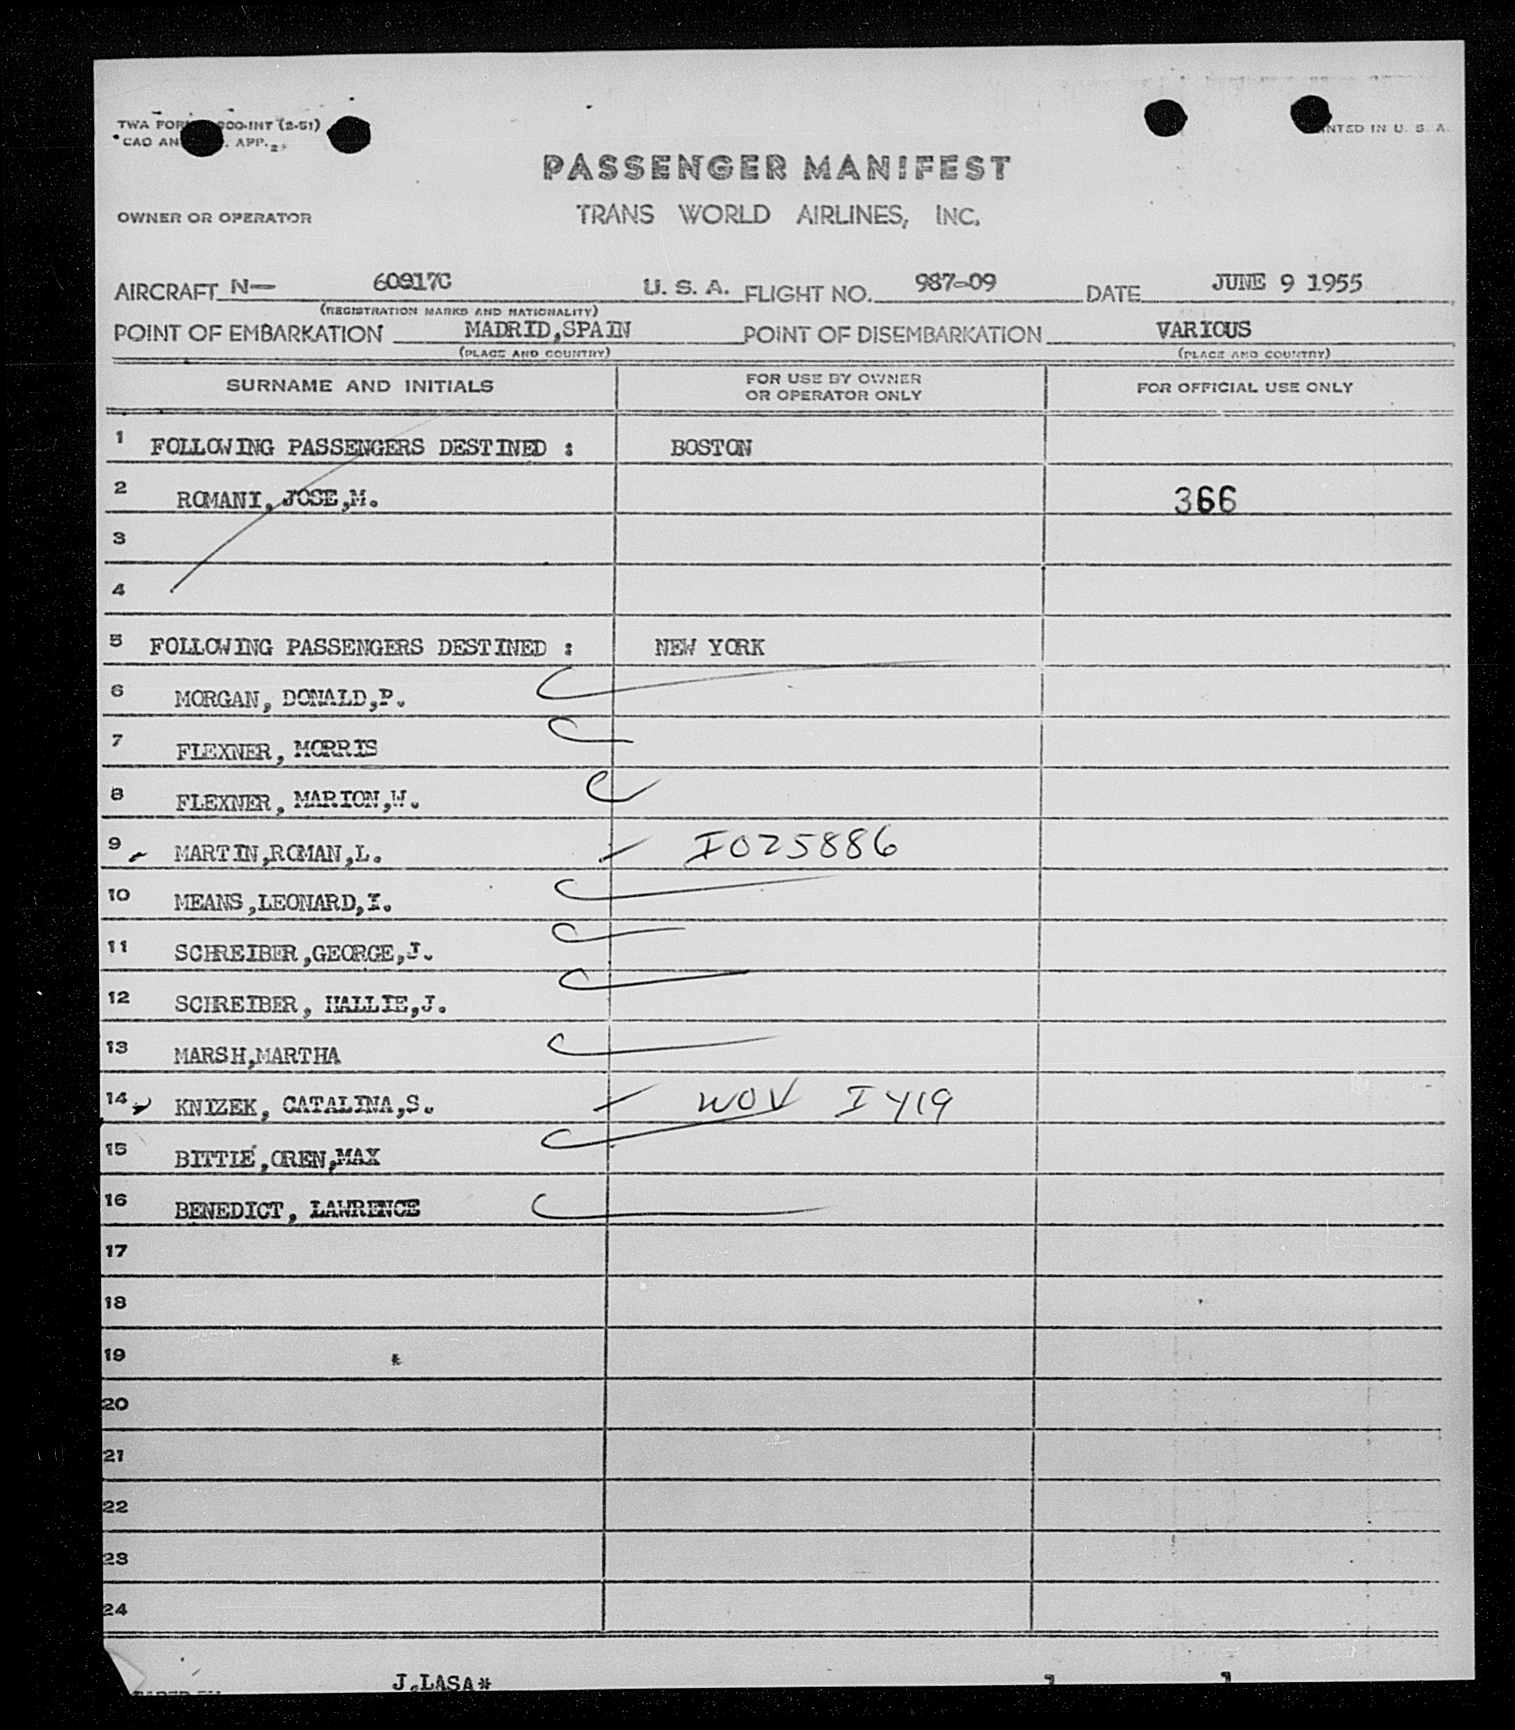 TWA FORM 900-INT (2-51)
CAO AN . APP. 2,
PRINTED IN U. S. A.
PASSENGER MANIFEST
OWNER OR OPERATOR TRANS WORLD AIRLINES, INC.
AIRCRAFT N— 60917C U. S. A. FLIGHT NO. 987-09 DATE JUNE 9 1955
(REGISTRATION MARKS AND NATIONALITY)
POINT OF EMBARKATION MADRID,SPAIN POINT OF DISEMBARKATION VARIOUS
(PLACE AND COUNTRY) (PLACE AND COUNTRY)
SURNAME AND INITIALS FOR USE BY OWNER OR OPERATOR ONLY FOR OFFICIAL USE ONLY
1 FOLLOWING PASSENGERS DESTINED : BOSTON
2 ROMANI, JOSE,M. 366
3
4
5 FOLLOWING PASSENGERS DESTINED : NEW YORK
6 MORGAN, DONALD,P.
7 FLEXNER, MORRIS
8 FLEXNER, MARION,W.
9 MARTIN,ROMAN,L. I025886
10 MEANS,LEONARD,I.
11 SCHREIBER,GEORGE,J.
12 SCHREIBER, HALLIE,J.
13 MARSH,MARTHA
14 KNIZEK, CATALINA,S. WOV I 419
15 BITTIE,OREN,MAX
16 BENEDICT, LAWRENCE
17
18
19
20
21
22
23
24
J.LASA*